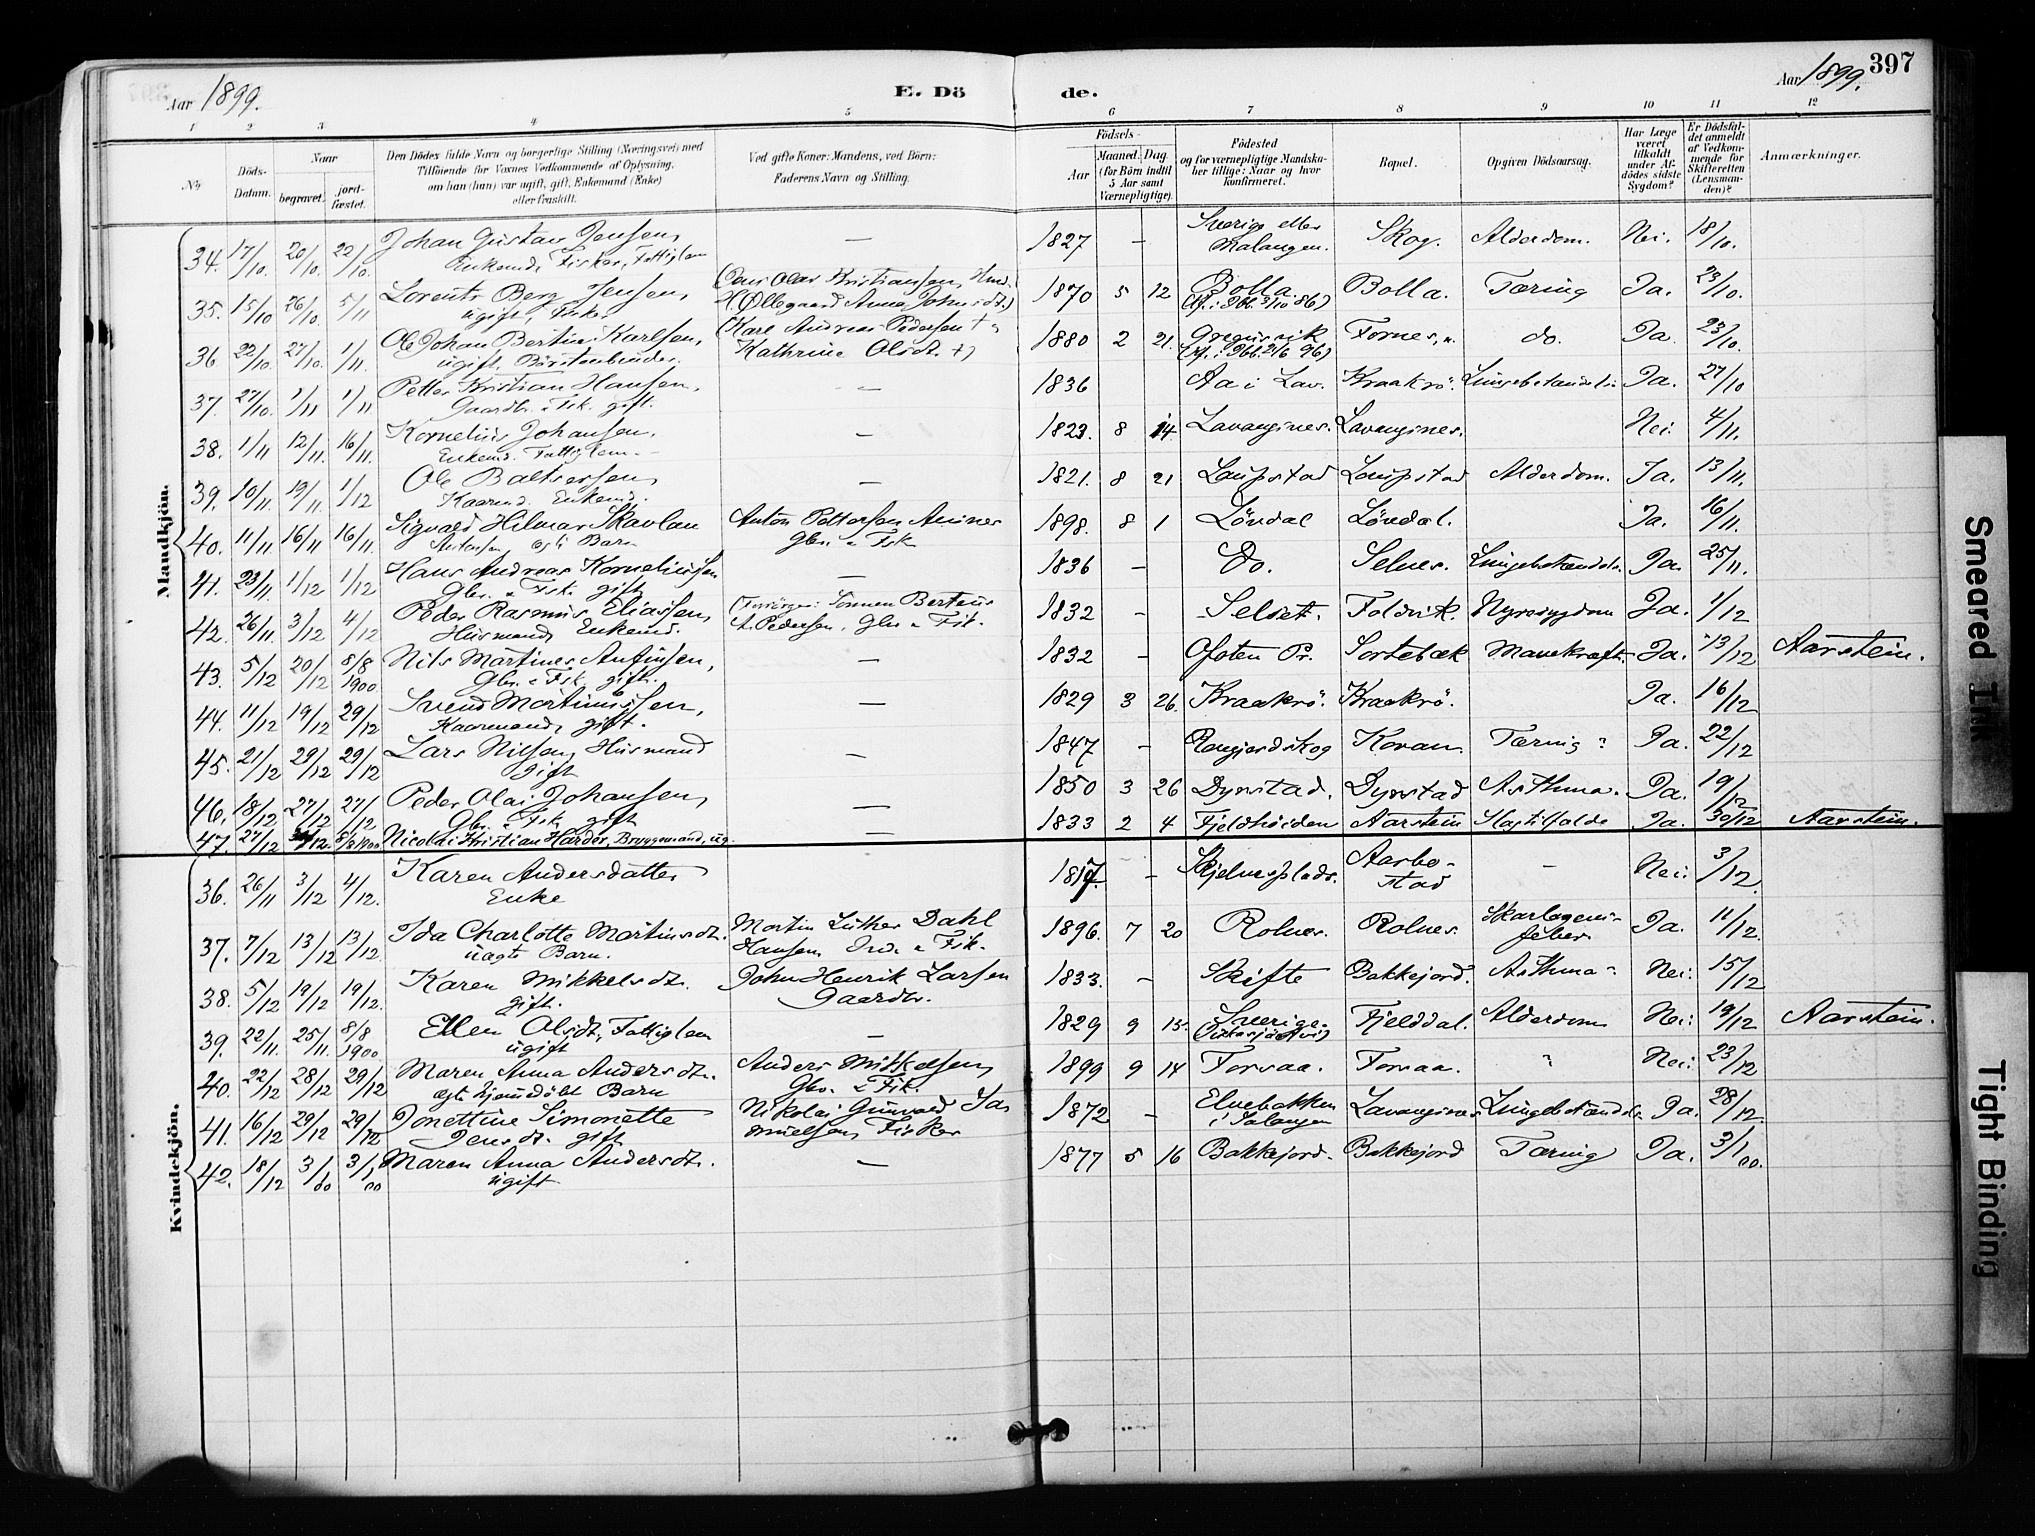 397
Aar 1899.
E. Döde.
Aar 1899.
1 2 3 4 5 6 7 8 9 10 11 12
No
Döds-Datum.
Naar
begravet.
jord-fæstet.
Den Dödes fulde Navn og borgerlige Stilling (Næringsvei) med
Tilföiende for Voxnes Vedkommende af Oplysning,
om han (hun) var ugift, gift, Enkemand (Enke)
eller fraskilt.
Ved gifte Koner: Mandens, ved Börn:
Faderens Navn og Stilling.
Födsels-
Aar
Maaned. Dag
(for Börn indtil
5 Aar samt
Værnepligtige).
Födested
og for værnepligtige Mandska-
ber tillige: Naar og hvor
konfirmeret.
Bopæl.
Opgiven Dödsaarsag.
Har Læge
været
tilkaldt
under Af-
dödes sidste
Sygdom?
Er Dödsfal-
det anmeldt
af Vedkom-
mende for
Skifteretten
(Lensman-
den)?
Anmærkninger.
Mandkjön.
34. 17/10. 20/10. 22/10. Johan Gustav Jensen, — 1827 — Sverige eller Skog. Alderdom. Nei. 18/10.
Enkemd, Fisker, Fattiglem Malangen.
35. 15/10 26/10. 5/11 Lorents Berg Jensen, (Jens Olai Kristiansen, Husmd. 1870 5 12 Bolla Bolla. Tæring Ja. 23/10.
ugift, Fisker Øllegaard Anna Johnsdt.)
36 22/10. 27/10. 1/11. Ole Johan Bertin Karlsen, (Karl Andreas Pedersen + 1880 2 21. Gregusvik Fornes, do. Ja. 23/10.
ugift, Börstenbinder. Kathrine Olsdt. +)
37. 27/10. 1/11 1/11 Petter Kristian Hansen, — 1836 Aa i Lav. Kraakrö. Lungebetændelse Ja. 27/10
Gaardbr. & Fsk. gift.
38. 1/11 12/11. 16/11. Kornelius Johansen, — 1823. 8 14. Lavangsnes. Lavangsnes. Nei. 4/11.
Enkemd. Fattiglem.
39. 10/11. 19/11. 1/12 Ole Baltsersen, — 1821. 8 21 Laupstad Laupstad Alderdom. Ja. 13/11.
Kaarmd. Enkemd.
40. 11/11 16/11 16/11. Sigvald Hilmar Skavlan Anton Pettersen Aminer 1898. 8 1 Lövdal Lövdal. Ja. 16/11.
Antonsen, egte Barn Gbr. & Fsk
41. 23/11 1/12 1/12 Hans Andreas Korneliussen — 1836 — Do. Selnes. Lungebetændelse. Ja. 25/11.
Gbr. & Fsk. gift
42. 26/11. 3/12 4/12 Peder Rasmus Eliassen, (Forsörger: Sönnen Berteus 1832 — Selset. Foldvik. Nyresygdom Ja. 1/12
Husmand, Enkemd. A. Pedersen, Gbr. & Fsk.
43. 5/12 20/12 8/8 1900. Nils Martines Anfinsen, — 1832 — Ofoten Pr. Sortebæk Mavekræft. Ja. 13/12 Aarstein.
Gbr. & Fsk. gift.
44. 11/12 19/12 29/12 Svend Martinussen, — 1829 3 26. Kraakrö. Kraakrö. Ja. 16/12
Kaarmand, gift.
45. 21/12 29/12 29/12 Lars Nilsen, Husmand — 1847 — Rengjordskog Kovan. Tæring? Ja. 22/12
gift
46. 18/12 27/12 27/12 Peder Olai Johansen, — 1850 3 26 Dyrstad. Dyrstad Asthma. Ja. 19/12
Gbr. & Fsk. gift
47. 27/12 5/8 1900 Nicolai Kristian Harder, Bryggemand, ug. — 1833 2 4 Fjeldhöiden Aarstein Slagtilfælde Ja. 30/12 Aarstein.
Kvindekjön.
36. 26/11 3/12 4/12. Karen Andersdatter 1817. — Skjelnesplads. Aarbo-stad — Nei. 3/12.
Enke
37. 7/12 13/12 13/12. Ida Charlotte Martinsdt. Martin Luther Dahl 1896. 7 20 Rolnes. Rolnes. Skarlagens-feber. Ja. 11/12.
uægte Barn. Hansen, & Fsk.
38. 5/12 19/12 19/12. Karen Mikkelsdt. John Henrik Larsen 1833. — Skifte Bakkejord. Asthma Nei. 15/12
gift. Gaardbr.
39. 22/11. 25/11. 8/8 1900. Ellen Olsdt, Fattiglem — 1829 9 15. Sverige Fjelddal. Alderdom Nei. 19/12 Aarstein.
ugift
40. 22/12 28/12 29/12 Maren Anna Andersdt. Anders Mikkelsen, 1899 9 14 Forsaa. Forsaa. " Nei. 23/12
egte hjemdöbt Barn Gbr. & Fsk.
41. 16/12 29/12 29/12 Jonettine Simonette Nikolai Gunvald Sa- 1872 — Elvebakken Lavangsnes Lungebetændelse. Ja. 28/12.
Jensdt. gift muelsen, Fisker i Salangen
42. 18/12 3/1 00 3/1 00 Maren Anna Andersdt. — 1877 5 16 Bakkejord. Bakkejord Tæring Ja. 3/1 00.
ugift
Smeared Ink
Tight Binding